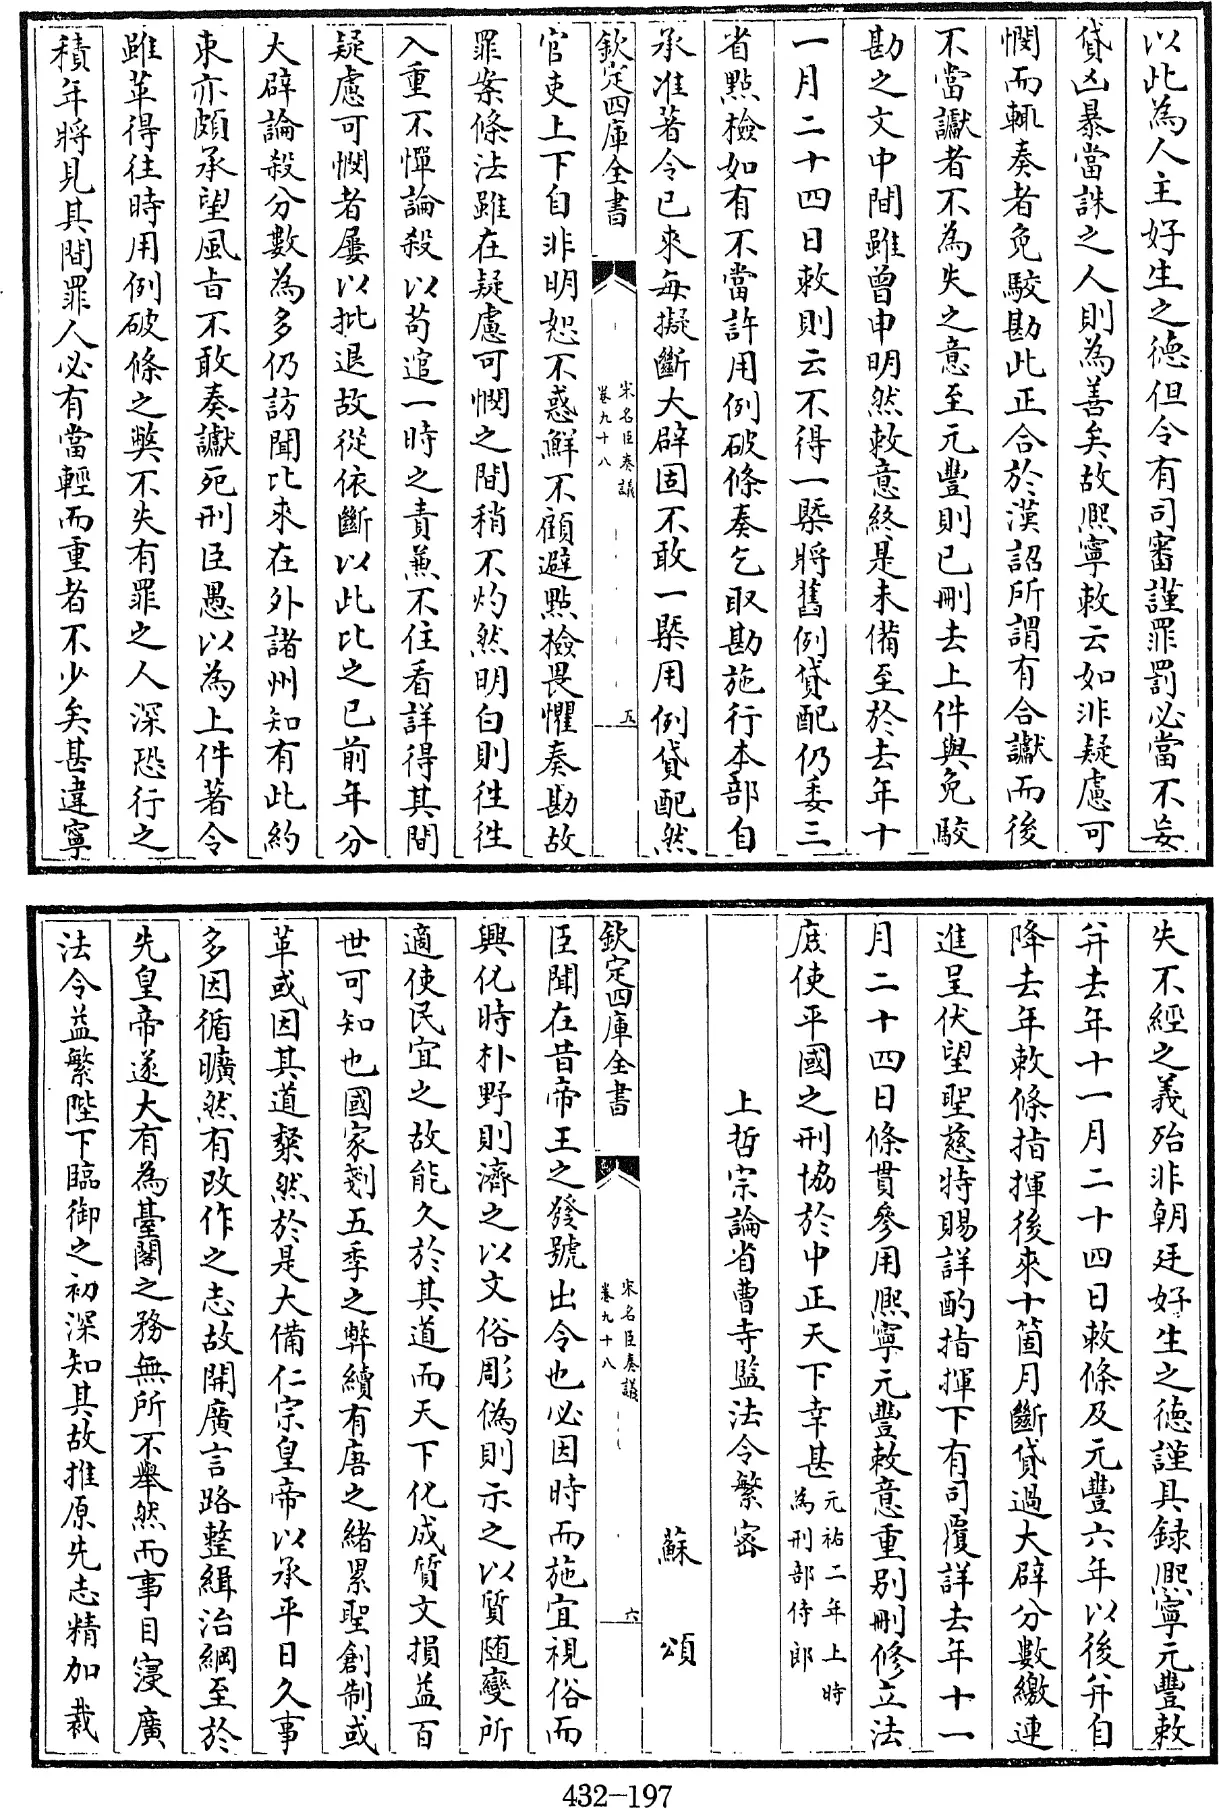 以此為人主好生之徳但令有司審謹罪罰必當不妄
貸凶暴當誅之人則為善矣故熈寧敕云如非疑慮可
憫而輒奏者免駮勘此正合於漢詔所謂有合讞而後
不當讞者不為失之意至元豐則已刪去上件與免駮
勘之文中間雖曾申明然敕意終是未備至於去年十
一月二十四日敕則云不得一槩將舊例貸配仍委三
省點檢如有不當許用例破條奏乞取勘施行本部自
承准著令已來每擬斷大辟固不敢一槩用例貸配然
欽定四庫全書
宋名臣奏議
卷九十八
五
官吏上下自非明恕不惑鮮不顧避點檢畏懼奏勘故
罪案條法雖在疑慮可憫之間稍不灼然明白則徃徃
入重不憚論殺以茍逭一時之責兼不住看詳得其間
疑慮可憫者屢以批退故從依斷以此比之已前年分
大辟論殺分數為多仍訪聞比來在外諸州知有此約
束亦頗承望風㫖不敢奏讞死刑臣愚以為上件著令
雖革得往時用例破條之獘不失有罪之人深恐行之
積年將見其間罪人必有當輕而重者不少矣甚違寧
失不經之義殆非朝廷好生之徳謹具録熈寧元豐敕
并去年十一月二十四日敕條及元豐六年以後并自
降去年敕條指揮後來十箇月斷貸過大辟分數繳連
進呈伏望聖慈特賜詳酌指揮下有司覆詳去年十一
月二十四日條貫參用熈寧元豐敕意重别刪修立法
庶使平國之刑協於中正天下幸甚元祐二年上時為刑部侍郎
上哲宗論省曹寺監法令繁密
蘇頌
欽定四庫全書
宋名臣奏議
卷九十八
六
臣聞在昔帝王之發號出令也必因時而施宜視俗而
興化時朴野則濟之以文俗彫偽則示之以質随變所
適使民宜之故能久於其道而天下化成質文損益百
世可知也國家剗五季之弊續有唐之緒累聖創制或
革或因其道粲然於是大備仁宗皇帝以承平日久事
多因循曠然有改作之志故開廣言路整緝治綱至於
先皇帝遂大有為臺閣之務無所不舉然而事目寖廣
法令益繁陛下臨御之初深知其故推原先志精加裁
432-197